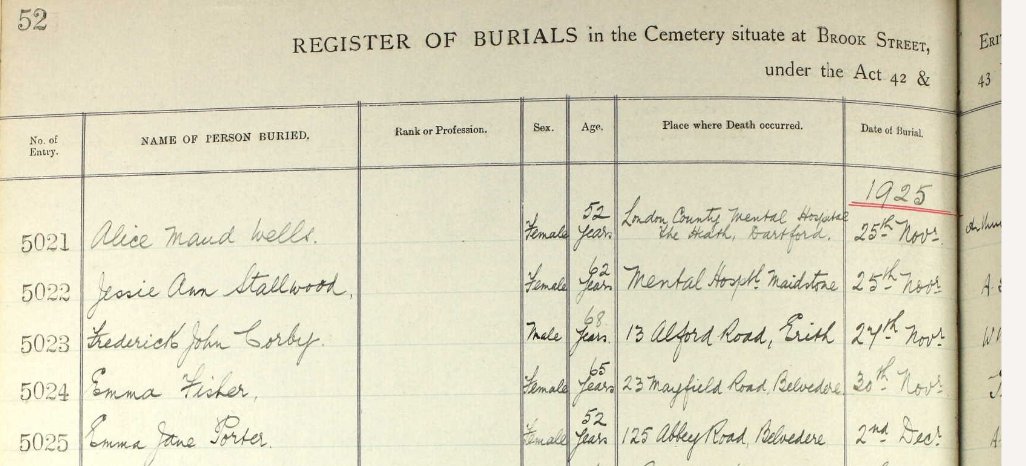 52
REGISTER OF BURIALS in the Cemetery situate at BROOK STREET,
under the Act 42 &
43
No. of Entry. NAME OF PERSON BURIED. Rank or Profession. Sex. Age. Place where Death occurred. Date of Burial.
1925
5021 Alice Maud Wells. Female 52 Years London County Mental Hospital The Heath, Dartford. 25th Novr
5022 Jessie Ann Stallwood, Female 62 Years Mental Hosptl Maidstone 25th Novr A.
5023 Frederick John Corby. Male 68 Years. 13 Alford Road, Erith 27th Novr
5024 Emma Fisher, Female 65 Years 23 Mayfield Road, Belvedere, 30th Novr
5025 Emma Jane Porter. Female 52 Years 125 Abbey Road, Belvedere 2nd Decr